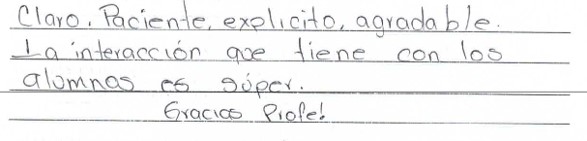 Claro, Paciente, explicito, agradable.
La interacción que tiene con los
alumnos es súper.
Gracias Profe!